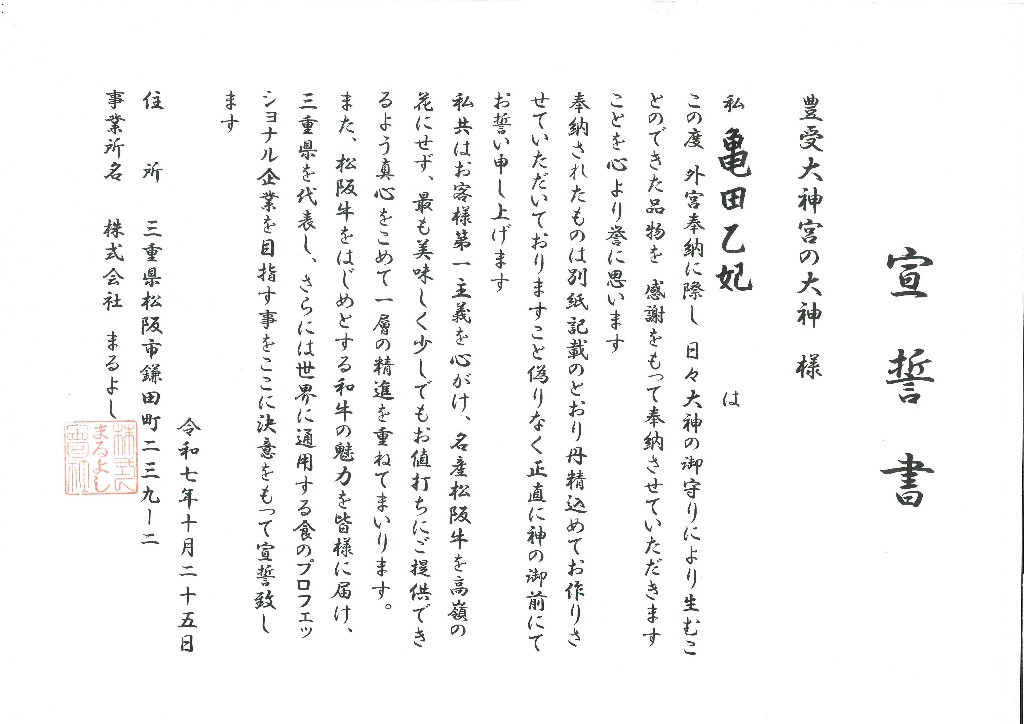 宣誓書
豊受大神宮の大神　様
私　亀田乙妃　は
この度　外宮奉納に際し　日々大神の御守りにより生むこ
とのできた品物を　感謝をもって奉納させていただきます
ことを心より誉に思います
奉納されたものは別紙記載のとおり丹精込めてお作りさ
せていただいておりますこと偽りなく正直に神の御前にて
お誓い申し上げます
私共はお客様第一主義を心がけ、名産松阪牛を高嶺の
花にせず、最も美味しく少しでもお値打ちにご提供でき
るよう真心をこめて一層の精進を重ねてまいります。
また、松阪牛をはじめとする和牛の魅力を皆様に届け、
三重県を代表し、さらには世界に通用する食のプロフェッ
ショナル企業を目指す事をここに決意をもって宣誓致し
ます
令和七年十月二十五日
住　所　三重県松阪市鎌田町二三九ー二
事業所名　株式会社　まるよし
株式
まるよし
會社